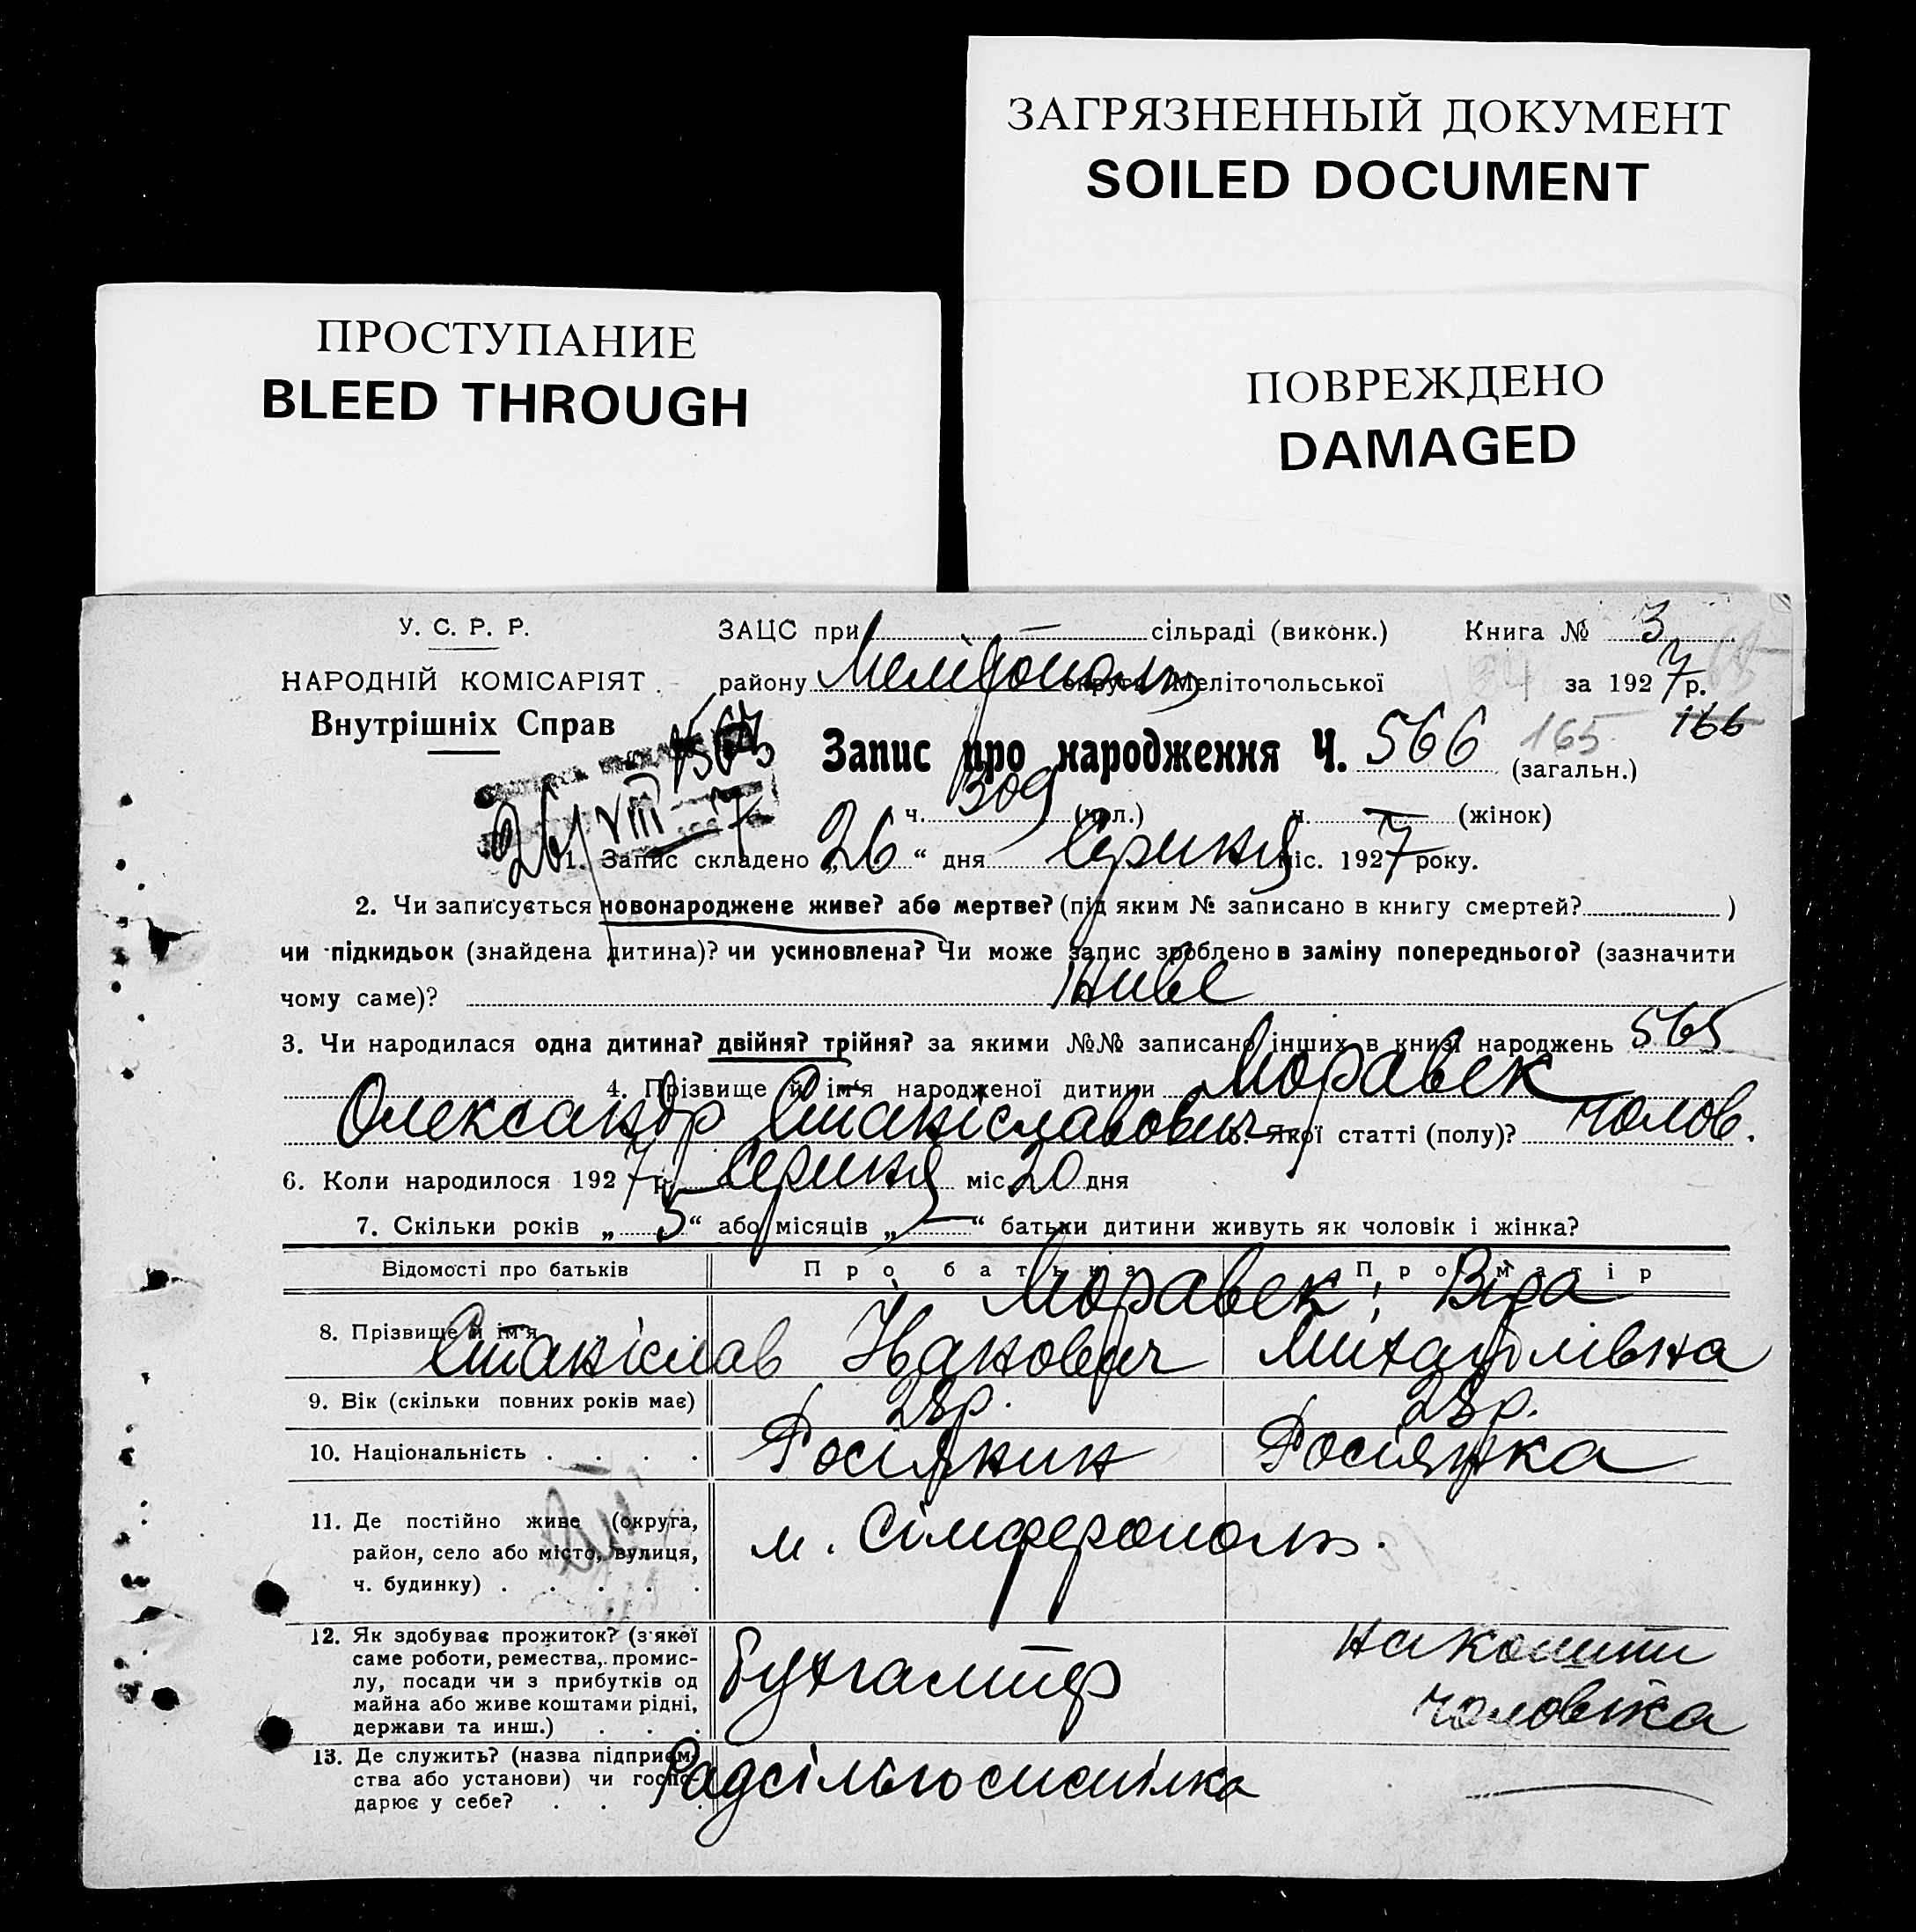 ЗАГРЯЗНЕННЫЙ ДОКУМЕНТ
SOILED DOCUMENT
ПРОСТУПАНИЕ
BLEED THROUGH
ПОВРЕЖДЕНО
DAMAGED
У. С. Р. Р.
ЗАЦС при — сільраді (виконк.) Книга № 3
НАРОДНІЙ КОМІСАРІЯТ району Мелітополь округи Мелітопольської за 1927 р.
Внутрішніх Справ
Запис про народження Ч. 566 165 166
(загальн.)
ч. 309 (чол.) ч. — (жінок)
26/VIII 7
1. Запис складено „26“ дня Серпня міс. 1927 року.
2. Чи записується новонароджене живе? або мертве? (під яким № записано в книгу смертей? )
чи підкидьок (знайдена дитина)? чи усиновлена? Чи може запис зроблено в заміну попереднього? (зазначити
чому саме)? Живе
3. Чи народилася одна дитина? двійня? трійня? за якими №№ записано інших в книзі народжень 565
4. Прізвище й ім'я народженої дитини Моравек
Олександр Станіславович 5. Якої статті (полу)? чолов.
6. Коли народилося 1927 р. Серпня міс. 20 дня
7. Скільки років „5“ або місяців „—“ батьки дитини живуть як чоловік і жінка?
Відомості про батьків Про батька Про матір
Моравек; Віра
8. Прізвище й ім'я Станіслав Іванович Михайлівна
9. Вік (скільки повних років має) 28р. 28р.
10. Національність . . . . Росіянин Росіянка
11. Де постійно живе (округа,
район, село або місто, вулиця, м. Сімферополь.
ч. будинку) . . . . .
12. Як здобуває прожиток? (з якої на кошти
саме роботи, ремества, промис-
лу, посади чи з прибутків од Бухгалтер
майна або живе коштами рідні, чоловіка
держави та инш.) . . .
13. Де служить? (назва підприєм-
ства або установи) чи госпо- Радсільгоспспілка
дарює у себе? . . . .